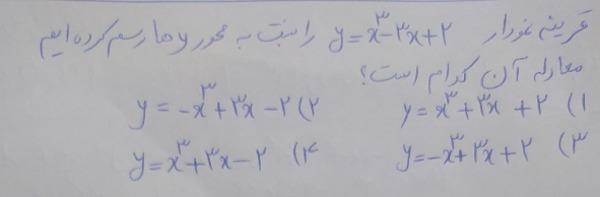 قرینه نمودار y=x³-۳x+۲ را نسبت به محور yها رسم کرده ایم
معادله آن کدام است؟
۱) y=x³+۳x+۲ ۲) y=-x³+۳x-۲
۳) y=-x³+۳x+۲ ۴) y=x³+۳x-۲